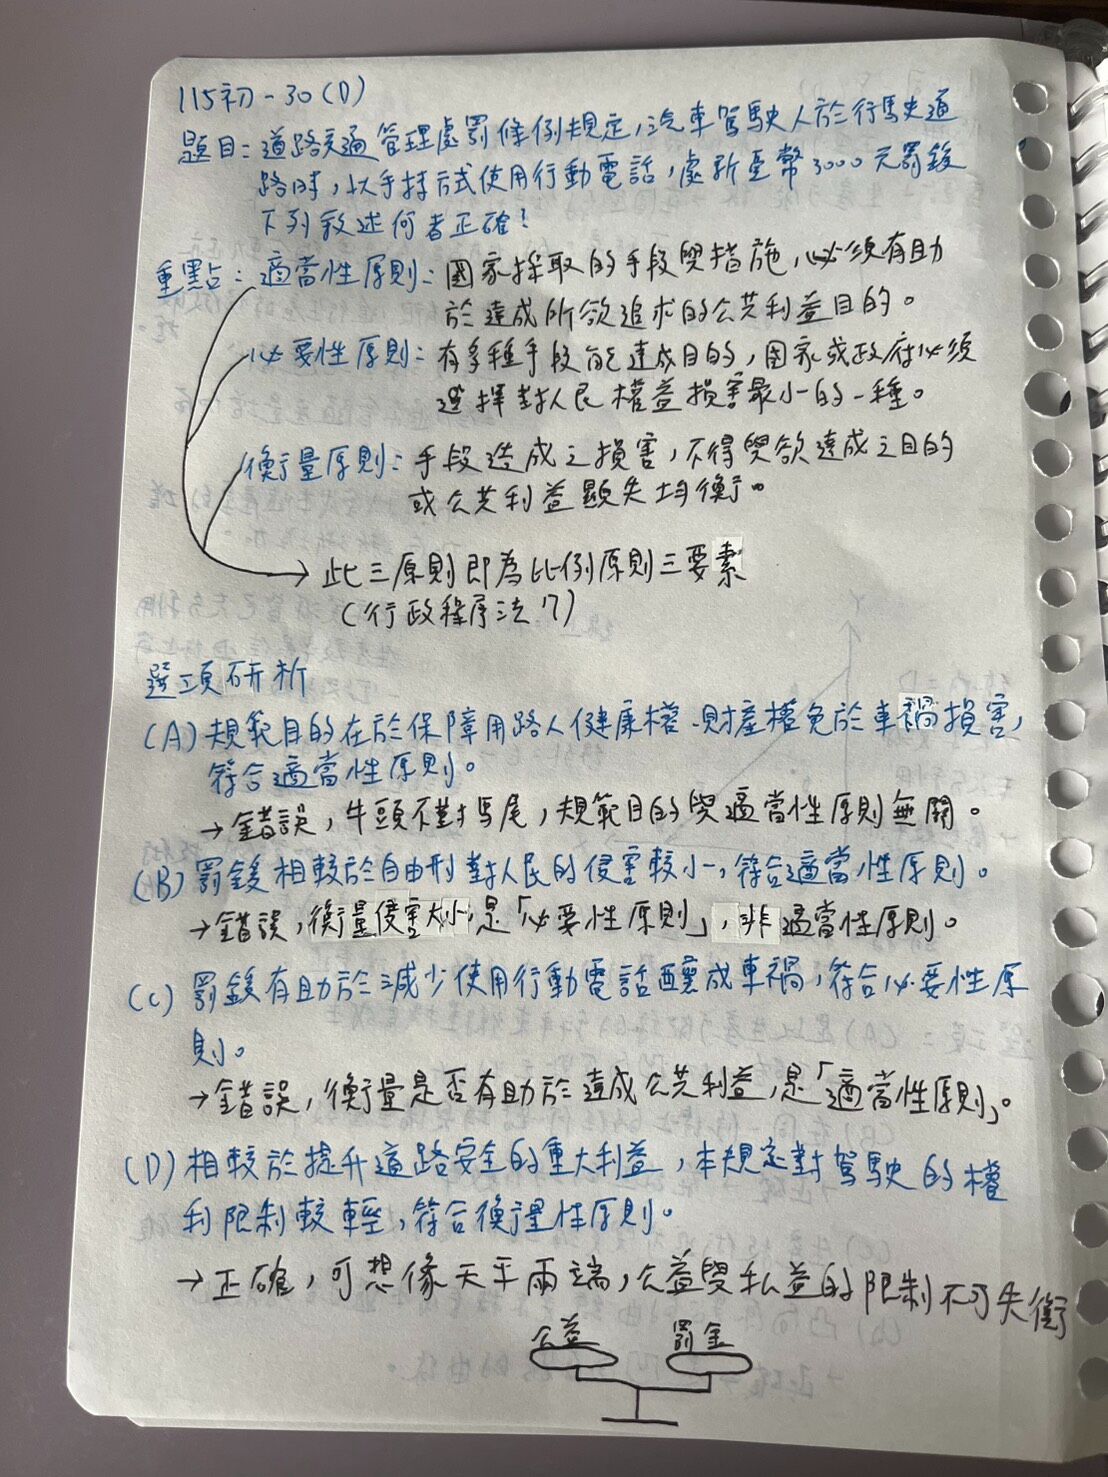 115初-30(D)
題目:道路交通管理處罰條例規定,汽車駕駛人於行駛道
路時,以手持方式使用行動電話,處新臺幣3000元罰鍰
下列敘述何者正確!
重點:適當性原則:國家採取的手段與措施,必須有助
於達成所欲追求的公共利益目的。
必要性原則:有多種手段能達成目的,國家或政府必須
選擇對人民權益損害最小的一種。
衡量原則:手段造成之損害,不得與欲達成之目的
或公共利益顯失均衡。
→此三原則即為比例原則三要素
(行政程序法7)
選項研析
(A)規範目的在於保障用路人健康權、財產權免於車禍損害,
符合適當性原則。
→錯誤,牛頭不對馬尾,規範目的與適當性原則無關。
(B)罰鍰相較於自由刑對人民的侵害較小,符合適當性原則。
→錯誤,衡量侵害大小,是「必要性原則」,非適當性原則。
(C)罰鍰有助於減少使用行動電話釀成車禍,符合必要性原
則。
→錯誤,衡量是否有助於達成公共利益,是「適當性原則」。
(D)相較於提升道路安全的重大利益,本規定對駕駛的權
利限制較輕,符合衡量性原則。
→正確,可想像天平兩端,公益與私益的限制不可失衡
公益 罰金